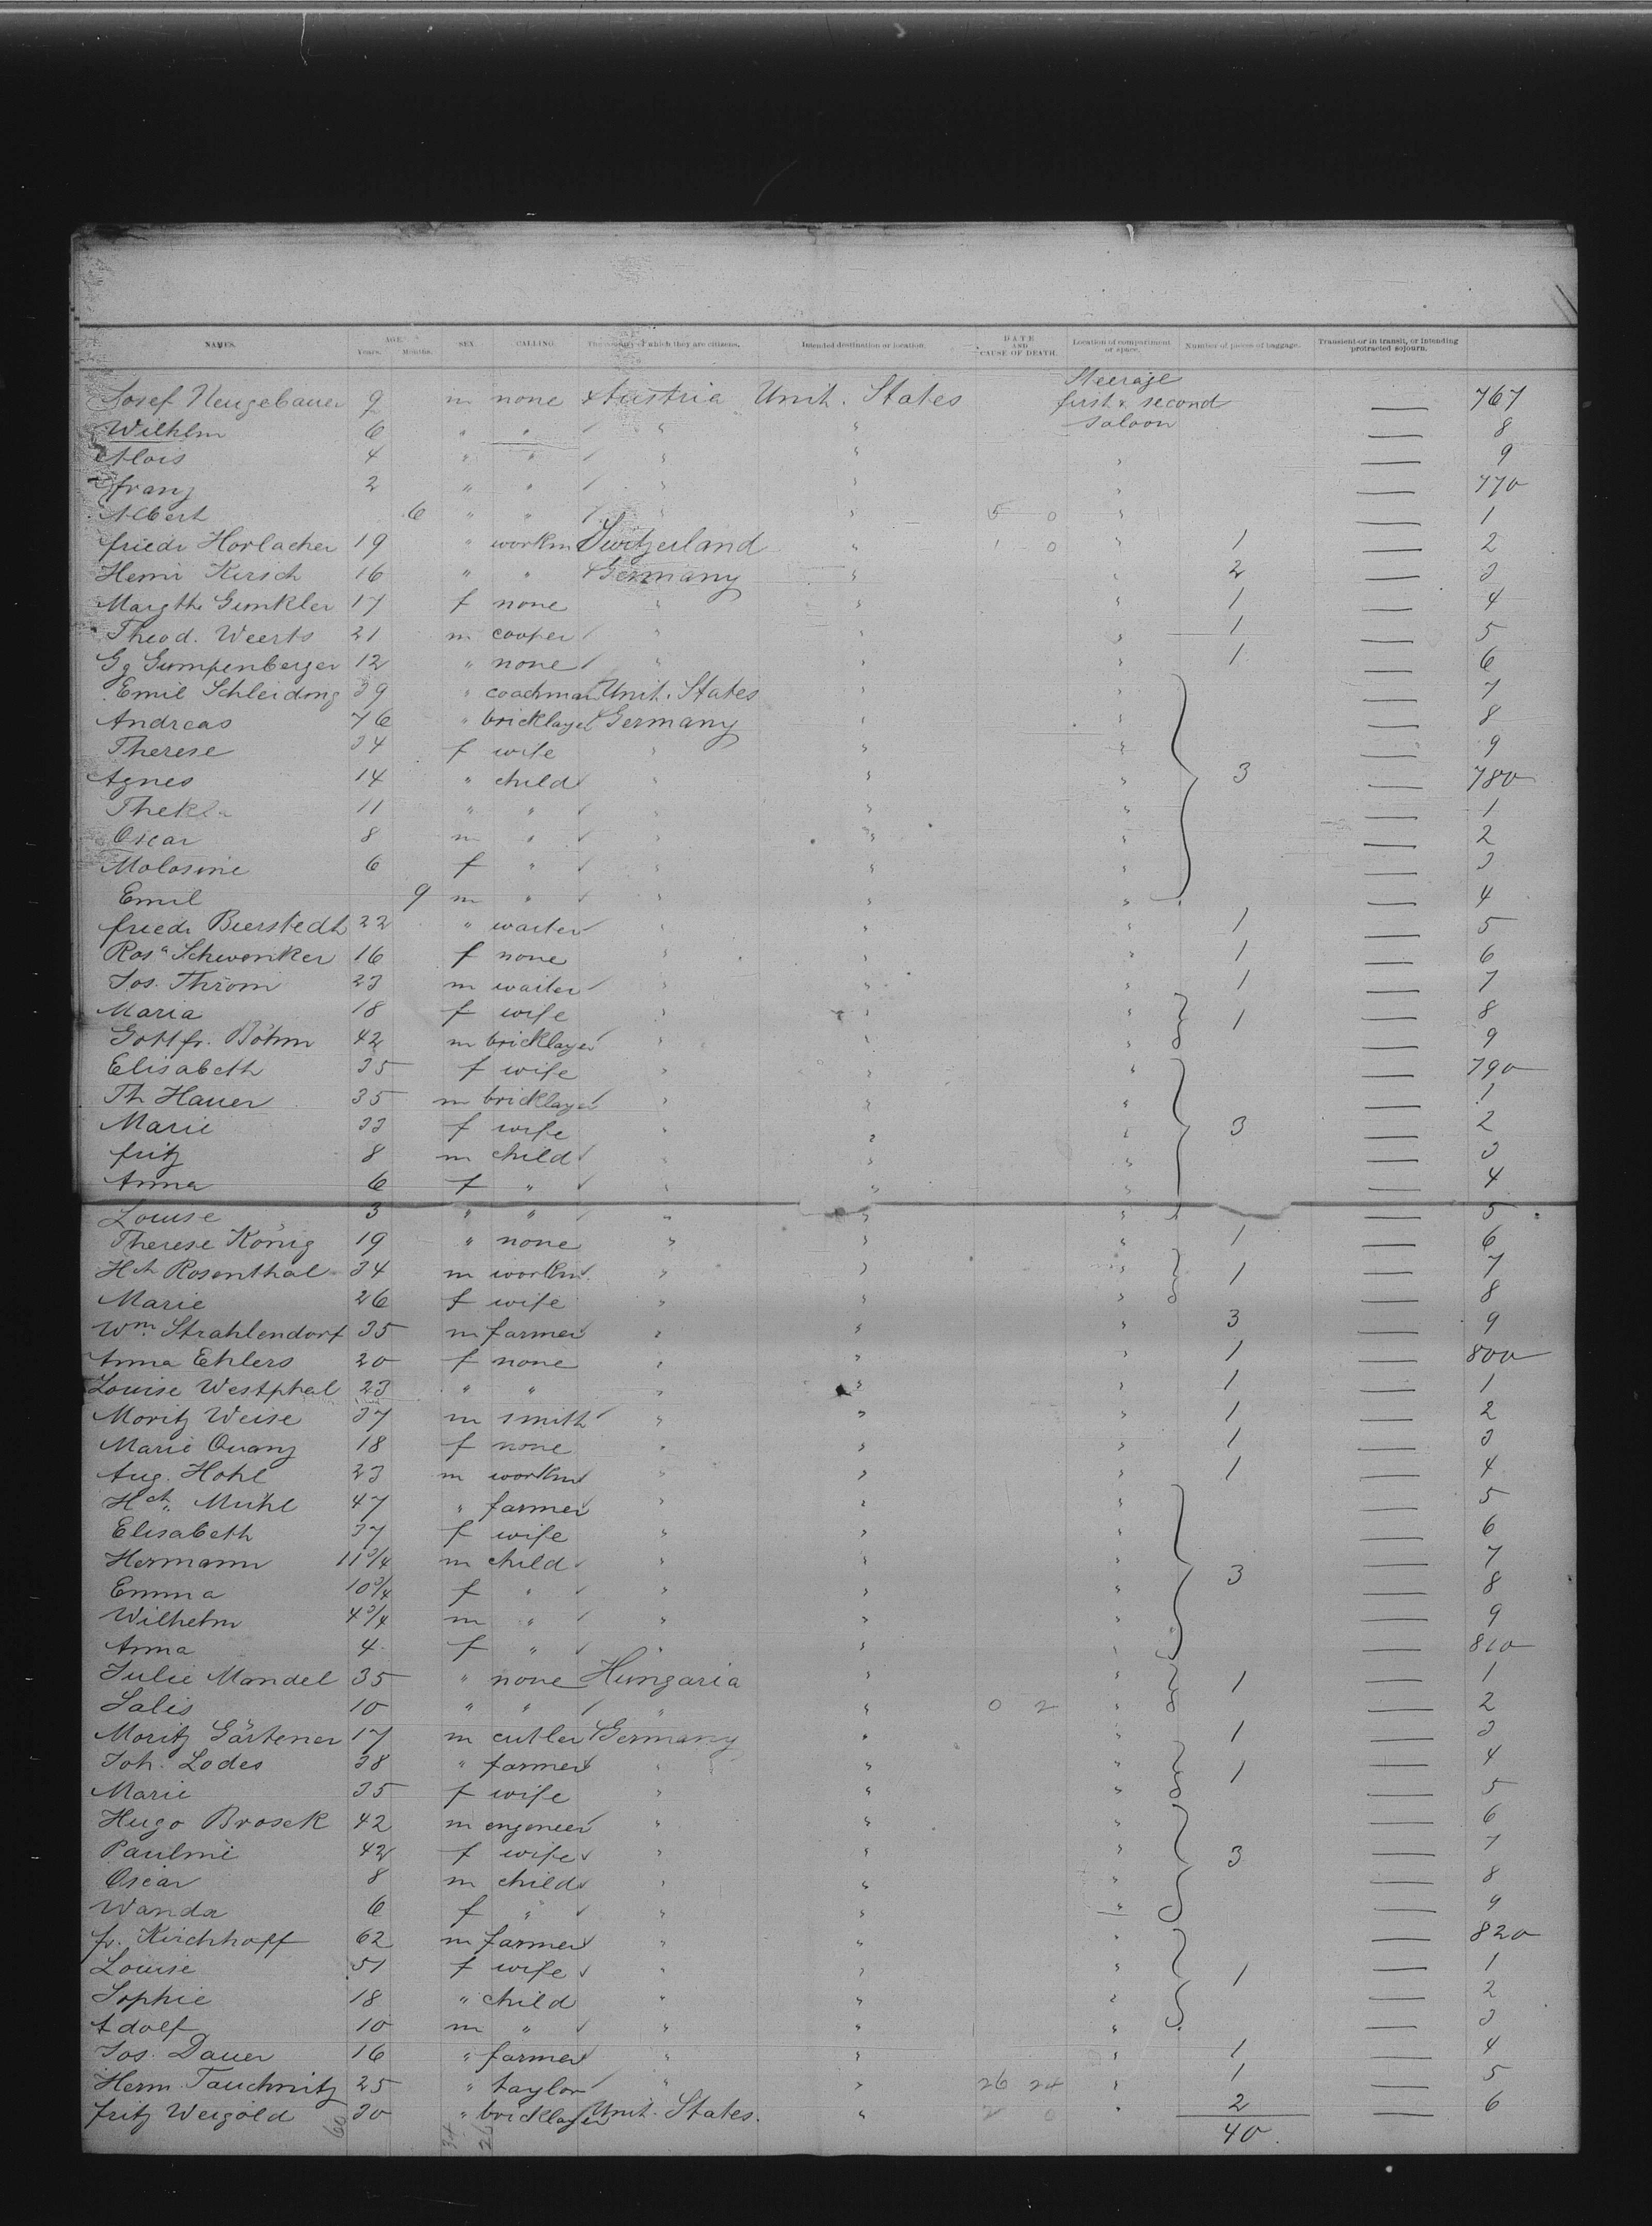 NAMES. AGE. Years. Months. SEX. CALLING. The country of which they are citizens. Intended destination or location. DATE AND CAUSE OF DEATH. Location of compartment or space. Number of pieces of baggage. Transient or in transit, or intending protracted sojourn.
Josef Neugebauer 9 m none Austria Unit. States Steerage first & second saloon — 767
Wilhlm 6 " " " " — 8
Alois 4 " " " " " — 9
Franz 2 " " " " " — 770
Albert 6 " " " " 5 0 " — 1
Friedr Horlacher 19 " workm Switzerland " 1 0 " 1 — 2
Henri Kirsch 16 " " Germany " " 2 — 3
Margthe Gunkler 17 f none " " " 1 — 4
Theod. Weerts 21 m cooper " " " 1 — 5
Gg Gumpenberger 12 " none " " " 1 — 6
Emil Schleiding 39 " coachman Unit. States " " — 7
Andreas 76 " bricklayer Germany " " — 8
Therese 34 f wife " " " — 9
Agnes 14 " child " " " 3 — 780
Thekla 11 " " " " " — 1
Oscar 8 m " " " " — 2
Molosine 6 f " " " " — 3
Emil 9 m " " " " — 4
Friedr Bierstedt 22 " waiter " " " 1 — 5
Rosa Schwenker 16 f none " " " 1 — 6
Jos. Throm 23 m waiter " " " 1 — 7
Maria 18 f wife " " " 1 — 8
Gottfr. Böhm 42 m bricklayer " " " — 9
Elisabeth 35 f wife " " " — 790
Th Hauer 35 m bricklayer " " " — 1
Marie 33 f wife " " " 3 — 2
Fritz 8 m child " " " — 3
Anna 6 f " " " " — 4
Louise 3 " " " " " — 5
Therese König 19 " none " " " 1 — 6
Hch Rosenthal 34 m workm. " " " 1 — 7
Marie 26 f wife " " " — 8
Wm. Strahlendorf 35 m farmer " " " 3 — 9
Anna Ehlers 20 f none " " " 1 — 800
Louise Westphal 23 " " " " " 1 — 1
Moritz Weise 37 m smith " " " 1 — 2
Marie Quanz 18 f none " " " 1 — 3
Aug. Hohl 23 m workm " " " 1 — 4
Hch. Mühl 47 " farmer " " " — 5
Elisabeth 37 f wife " " " — 6
Hermann 11 3/4 m child " " " 3 — 7
Emma 10 3/4 f " " " " — 8
Wilhelm 4 3/4 m " " " " — 9
Anna 4 f " " " " — 810
Julie Mandel 35 " none Hungaria " " 1 — 1
Salis 10 " " " " 0 2 " — 2
Moritz Gärtener 17 m cutler Germany " " 1 — 3
Joh. Lodes 38 " farmer " " " 1 — 4
Marie 35 f wife " " " — 5
Hugo Brosek 42 m engeneer " " " — 6
Pauline 42 f wife " " " 3 — 7
Oscar 8 m child " " " — 8
Wanda 6 f " " " " — 9
Fr. Kirchhoff 62 m farmer " " " — 820
Louise 51 f wife " " " 1 — 1
Sophie 18 " child " " " — 2
Adolf 10 m " " " " — 3
Jos. Dauer 16 " farmer " " " 1 — 4
Herm. Tauchnitz 25 " taylor " " 26 24 " 1 — 5
Fritz Weigold 30 " bricklayer Unit. States. " 2 0 " 2 — 6
60 34 26 40.